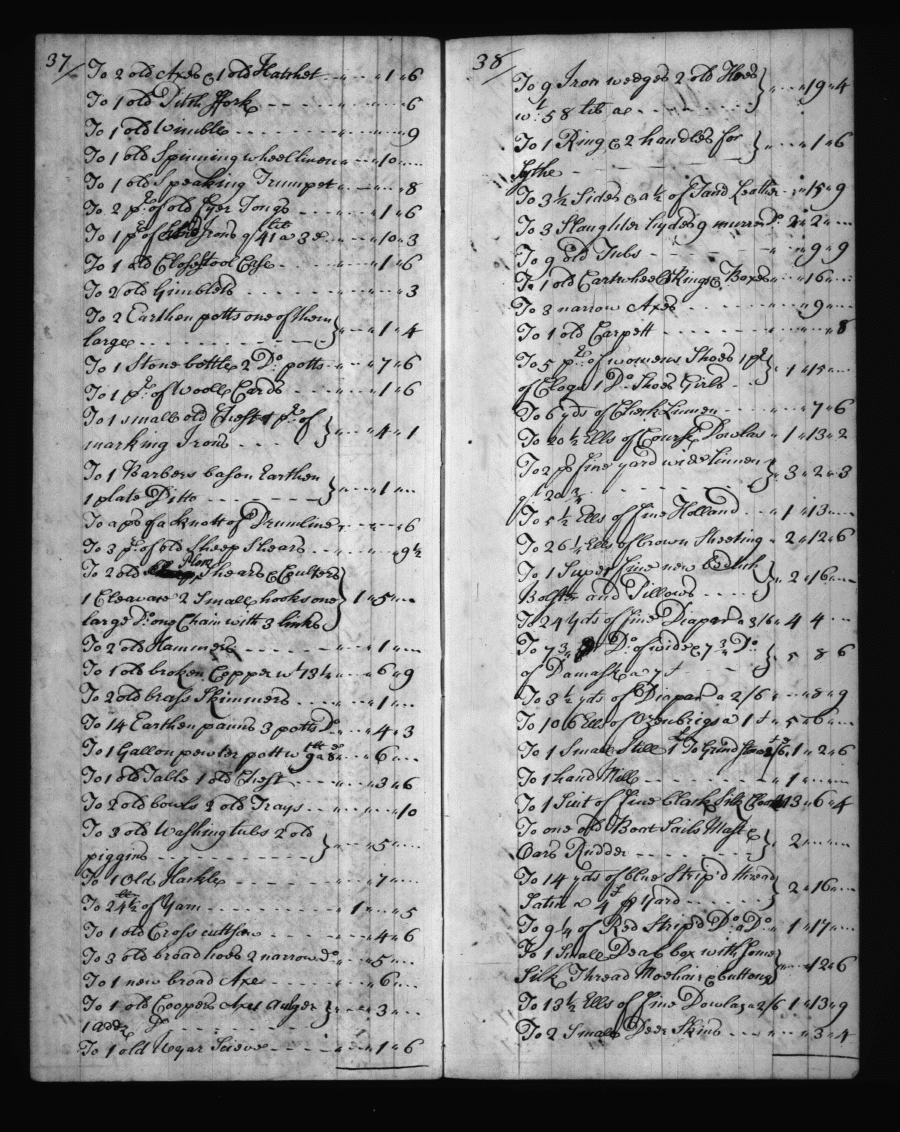 37/
To 2 old Axes & 1 old Hatchet - - " " 1 " 6
To 1 old Pitch Fork - - - - " " " 6
To 1 old Wimble - - - - - " " " 9
To 1 old Spinning wheel linen " " 10 " "
To 1 old Speaking Trumpet " " " 8
To 2 ps. of old Fyer Tongs - - " " 1 " 6
To 1 ps. of Irons qt. 41 lib a 3d " " 10 " 3
To 1 old Closestool Case - - " " 1 " 6
To 2 old Gimblets - - - - " " " 3
To 2 Earthen potts one of them
large - - - - - } " " 1 " 4
To 1 Stone bottle 2 Do. potts - " " 7 " 6
To 1 pr. of Wooll Cards - - " " 1 " 6
To 1 small old Chest 1 ps. of
marking Irons - - - } " " 4 " 1
To 1 Barbers bason Earthen
1 plate Ditto - - - - } " " 1 " "
To a ps of a knott of Drumline " " " 6
To 3 pr. of old Sheep Shears - - " " " 9 ½
To 2 old Plow Shears & Coulters
1 Cleavare 2 Small hooks one
large Do. one Chain with 3 links } 1 " 5 " "
To 2 old Hammers - - - " " 1 " "
To 1 old broken Copper wt. 13 ½ " " 6 " 9
To 2 old brass Skimmers - - " " 1 " "
To 14 Earthen panns 3 potts Do. " " 4 " 3
To 1 Gallon pewter pott wt. 9 lb a 8d " " 6 " "
To 1 old Table 1 old Chest - - " " 3 " 6
To 2 old bowls 2 old Trays - - " " " 10
To 3 old Washing tubs 2 old
piggins - - - - - } " " 5 " "
To 1 Old Hackle - - - - " " 7 " "
To 24 ½ lb of Yarn - - - - 1 " " " 5
To 1 old Cross cutt saw - - " " 4 " 6
To 3 old broad hoes 2 narrow Do. " " 5 " "
To 1 new broad Axe - - - " " 6 " "
To 1 old Coopers Axe 1 Auger
1 adz Do - - - - } " " 3 " "
To 1 old Scieve - - - " " 1 " 6
38/
To 9 Iron wedges 2 old Hoes
wt. 58 lib ac - - - } " " 19 " 4
To 1 Ring & 2 handles for
Sythe - - - - } " " 1 " 6
To 3 ½ Sides & a ½ of Tand Leather " " 15 " 9
To 3 Slaughter hydes 9 Do. 2 " 2 " "
To 9 old Tubs - - - - " " 9 " 9
To 1 old Cartwheel Rings & Boxes " " 16 " "
To 3 narrow Axes - - - " " 9 " "
To 1 old Carpett - - - - " " " 8
To 5 prs. of womens Shoes 1 pr
of Clogs 1 Do. Shoes Girls - } 1 " 15 " "
To 6 yds of Check Linnen - - " " 7 " 6
To 20 ½ Ells of Course Dowlas - 1 " 13 " 2
To 2 ps fine yard wide Linnen
qt - - - - } 3 " 2 " 3
To 5 ½ Ells of fine Holland - - 1 " 13 " "
To 26 ¼ Ells of brown Sheeting - 2 " 12 " 6
To 1 Super fine new Bed tick
Bolster and Pillows - - - } 2 " 16 " "
To 24 yds of fine Diaper a 3/6 " 4 " 4 " "
To 7 3/4 Do. of wide & 7 3/4 Do.
of Damask a 7 s } 5 " 8 " 6
To 3 ½ yds of Diaper a 2/6 " " 8 " 9
To 106 Ells of Ozenbrigs a 1 s " 5 " 6 " "
To 1 Small Still 1 To Grind Stone 1 " 2 " 6
To 1 hand Mill - - - - " 1 " " "
To 1 Suit of fine black Silk 13 " 6 " 4
To one old Boat Sails Mast &
Oars Rudder - - - - } 2 " " "
To 14 yds of blue Strip'd thread
Satin a 4 s ⅌ Yard - - - } 2 " 16 " "
To 9 ¼ of Red Strip'd Do. a Do. - 1 " 17 " "
To 1 Small Deal box with some
Silk Thread Mochair & buttons } " " 12 " 6
To 13 ½ Ells of fine Dowlas a 2/6 1 " 13 " 9
To 2 Small Deer Skins - - - " " 3 " 4